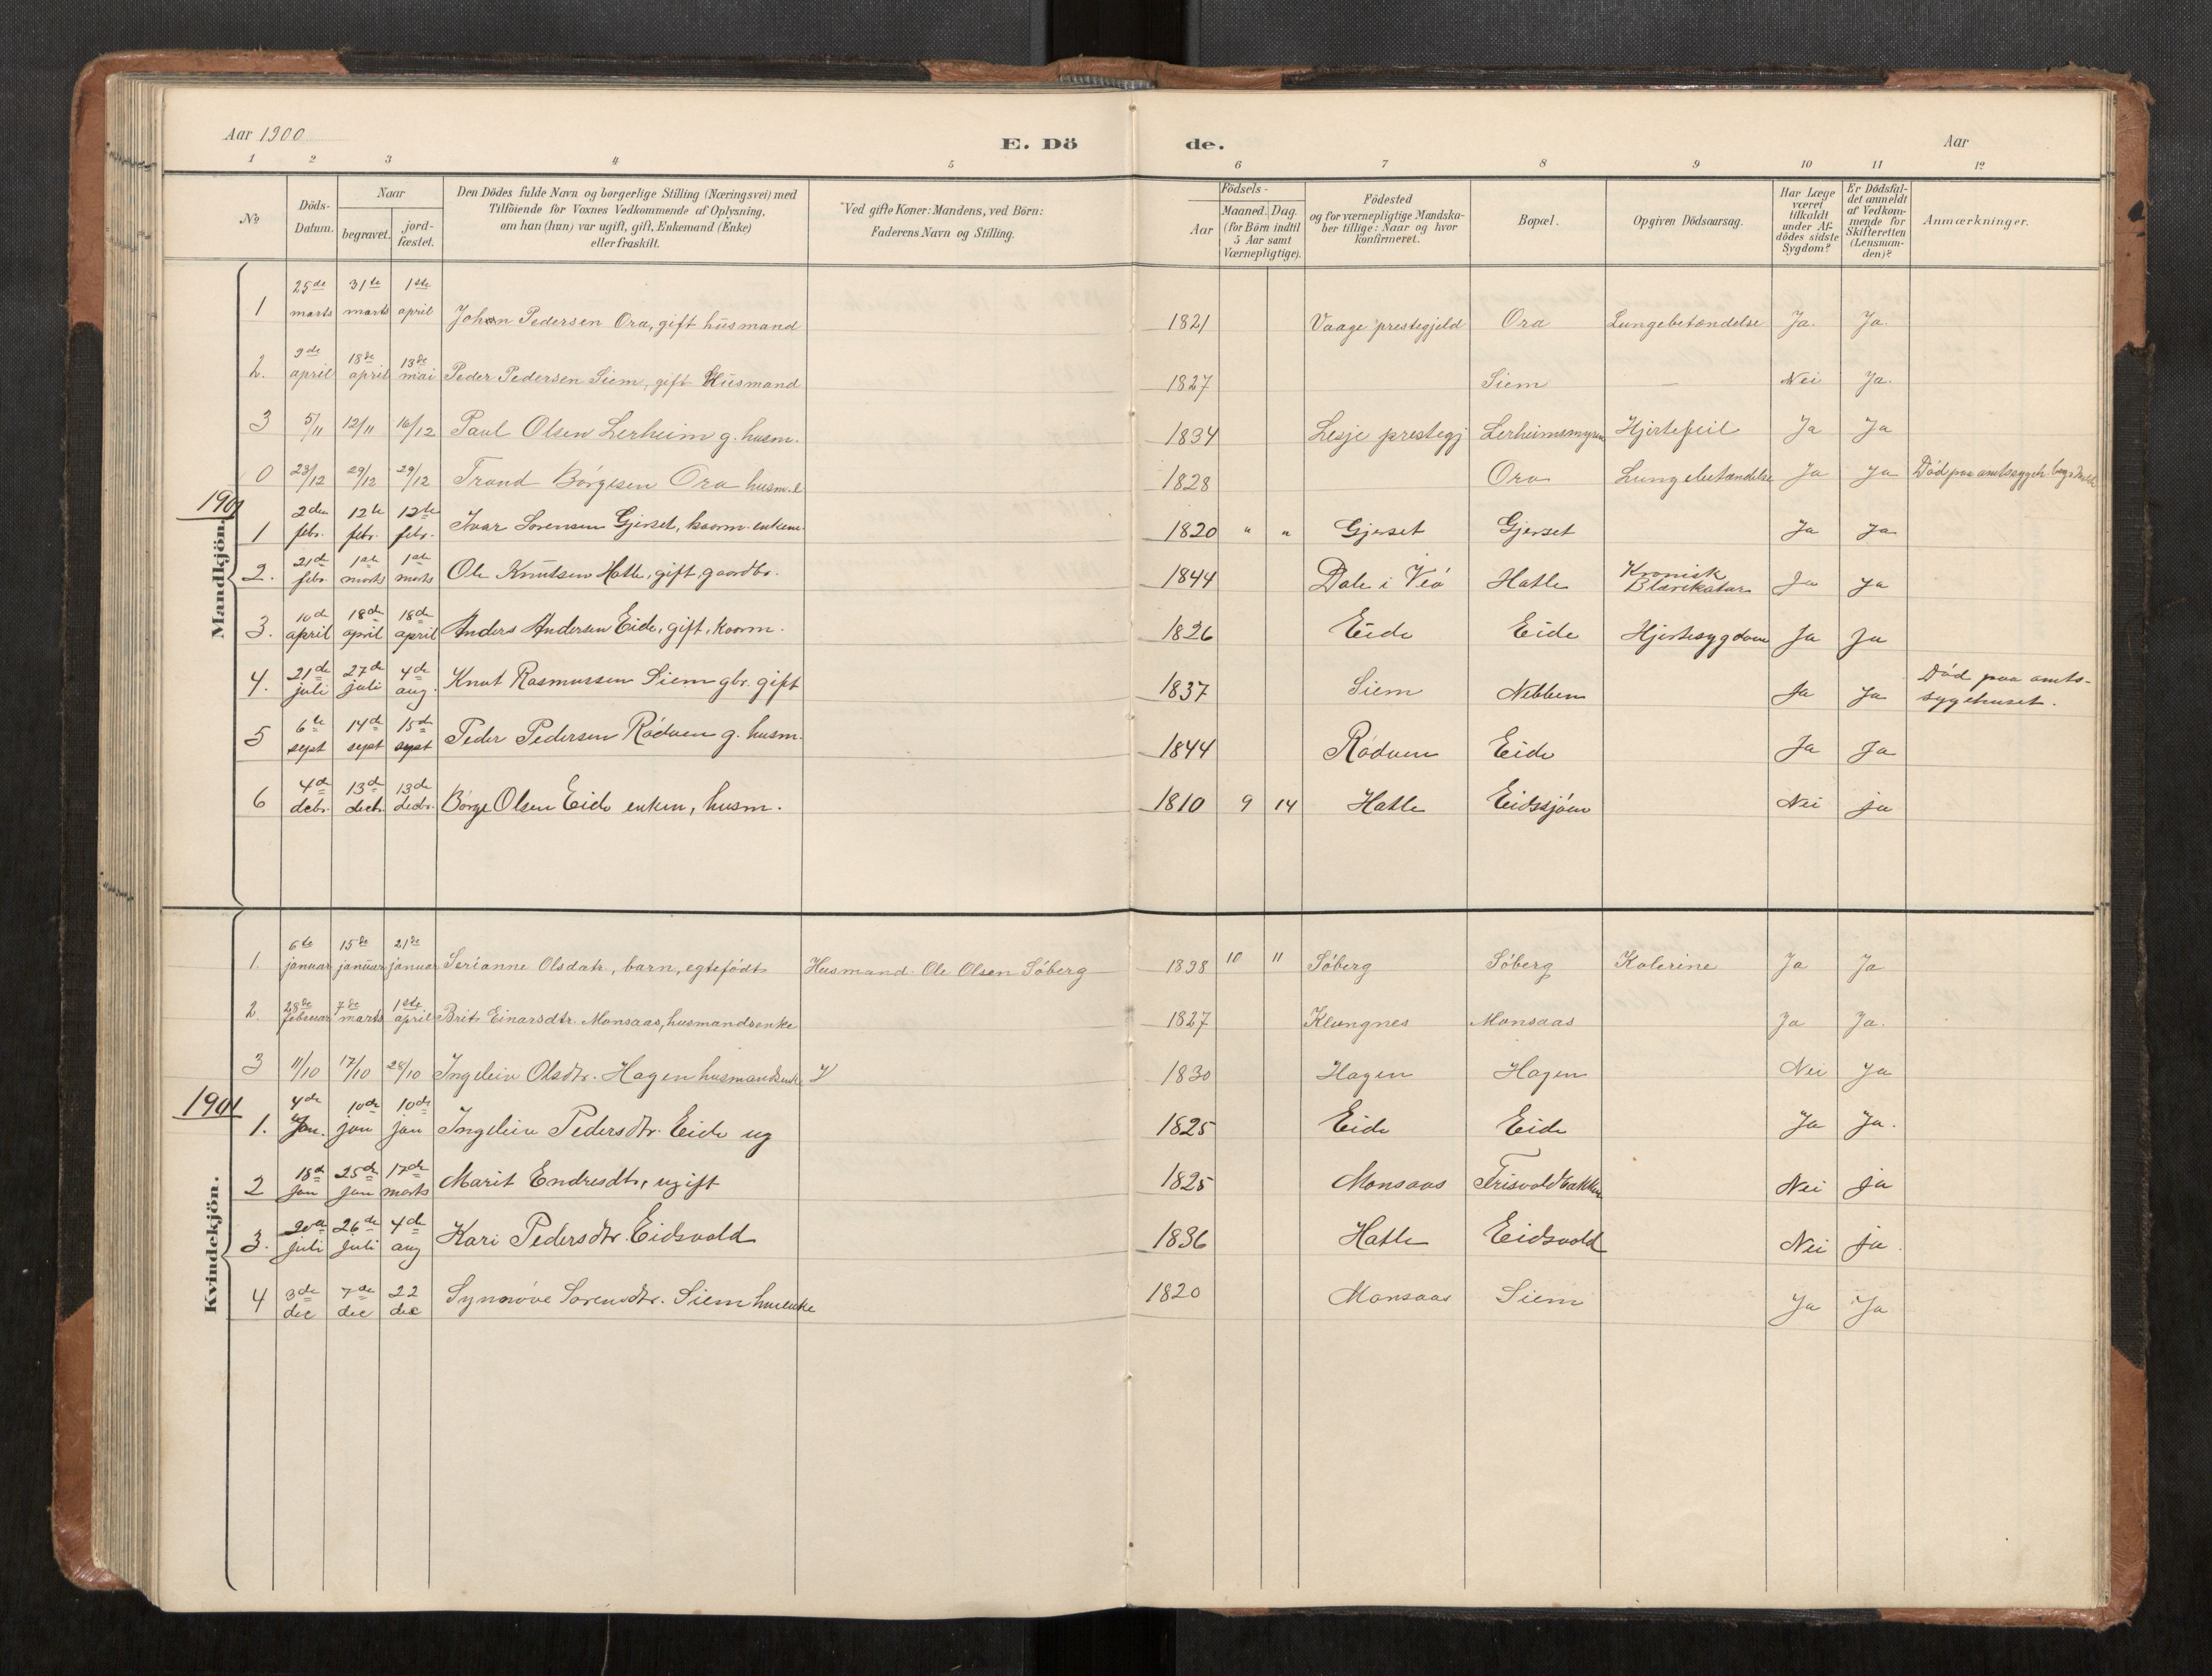 Aar 1900
E. Dö
de.
Aar
1 2 3 4 5 6 7 8 9 10 11 12
No
Döds-Datum.
Naar
begravet.
jord-fæstet.
Den Dödes fulde Navn og borgerlige Stilling (Næringsvei) med
Tilföiende for Voxnes Vedkommende af Oplysning,
om han (hun) var ugift, gift, Enkemand (Enke)
eller fraskilt.
Ved gifte Koner: Mandens, ved Börn:
Faderens Navn og Stilling.
Födsels-
Aar
Maaned. Dag.
(for Börn indtil
5 Aar samt
Værnepligtige).
Födested
og for værnepligtige Mandska-
ber tillige: Naar og hvor
konfirmeret.
Bopæl.
Opgiven Dödsaarsag.
Har Læge
været
tilkaldt
under Af-
dödes sidste
Sygdom?
Er Dödsfal-
det anmeldt
af Vedkom-
mende for
Skifteretten
(Lensman-
den)?
Anmærkninger.
Mandkjön.
1 25de marts 31te marts 1ste april Johan Pedersen Ora, gift husmand 1821 Vaage prestegjeld Ora Lungebetændelse Ja. Ja.
2. 9de april 18de april 13de mai Peder Pedersen Siem, gift Husmand 1827 Siem — Nei Ja.
3 5/11 12/11 16/12 Paul Olsen Lerheim g. husm. 1834 Lesje prestegj Lerheimsmyren Hjertefeil Ja Ja
0 23/12 29/12 29/12 Trond Børgesen Ora husm. 1828 Ora Lungebetændelse Ja Ja Død paa amtssygeh.
1901
1 2den febr. 12te febr. 12te febr. Ivar Sørensen Gjerset, kaarm. enkem. 1820 " " Gjerset Gjerset Ja Ja
2. 21de febr 1ste marts 1ste marts Ole Knutsen Hatle, gift, gaardbr. 1844 Dale i Veø Hatle Kronisk Blærekatar Ja ja
3. 10de april 18de april 18de april Anders Andersen Eide, gift, kaarm. 1826 Eide Eide Hjertesygdom Ja Ja
4. 21de juli 27de juli 4de aug. Knut Rasmussen Siem gbr. gift 1837 Siem Nebben Ja Ja Død paa amts-
sygehuset.
5 6te sept 14de sept 15de sept Peder Pedersen Rødven g. husm. 1844 Rødven Eide Ja Ja
6 4de decbr. 13de decbr. 13de decbr. Børge Olsen Eide enkem, husm. 1810 9 14 Hatle Eidssjøen Nei ja
Kvindekjön.
1. 6te januar 15de januar 21de januar Serianne Olsdatr, barn, egtefødt Husmand Ole Olsen Søberg 1898 10 11 Søberg Søberg Kolerine Ja Ja
2. 28de februar 7de marts 1ste april Brit Einarsdtr. Monsaas, husmandsenke 1827 Klungnes Monsaas Ja Ja.
3 11/10 17/10 28/10 Ingeleiv Olsdtr. Hagen husmandsenk. 1830 Hagen Hagen Nei Ja
1901
1. 4de Jan. 10de jan 10de jan Ingeleiv Pedersdtr. Eide ug 1825 Eide Eide Ja Ja.
2 18de Jan 25de Jan 17de marts Marit Endresdtr, ugift 1825 Monsaas Frisvoldbakken Nei ja
3. 20de juli 26de Juli 4de aug Kari Pedersdtr. Eidsvold 1836 Hatle Eidsvold Nei ja.
4 3de dec 7de dec 22 dec Synnøve Sørensdtr. Siem husenke 1820 Monsaas Siem Ja Ja